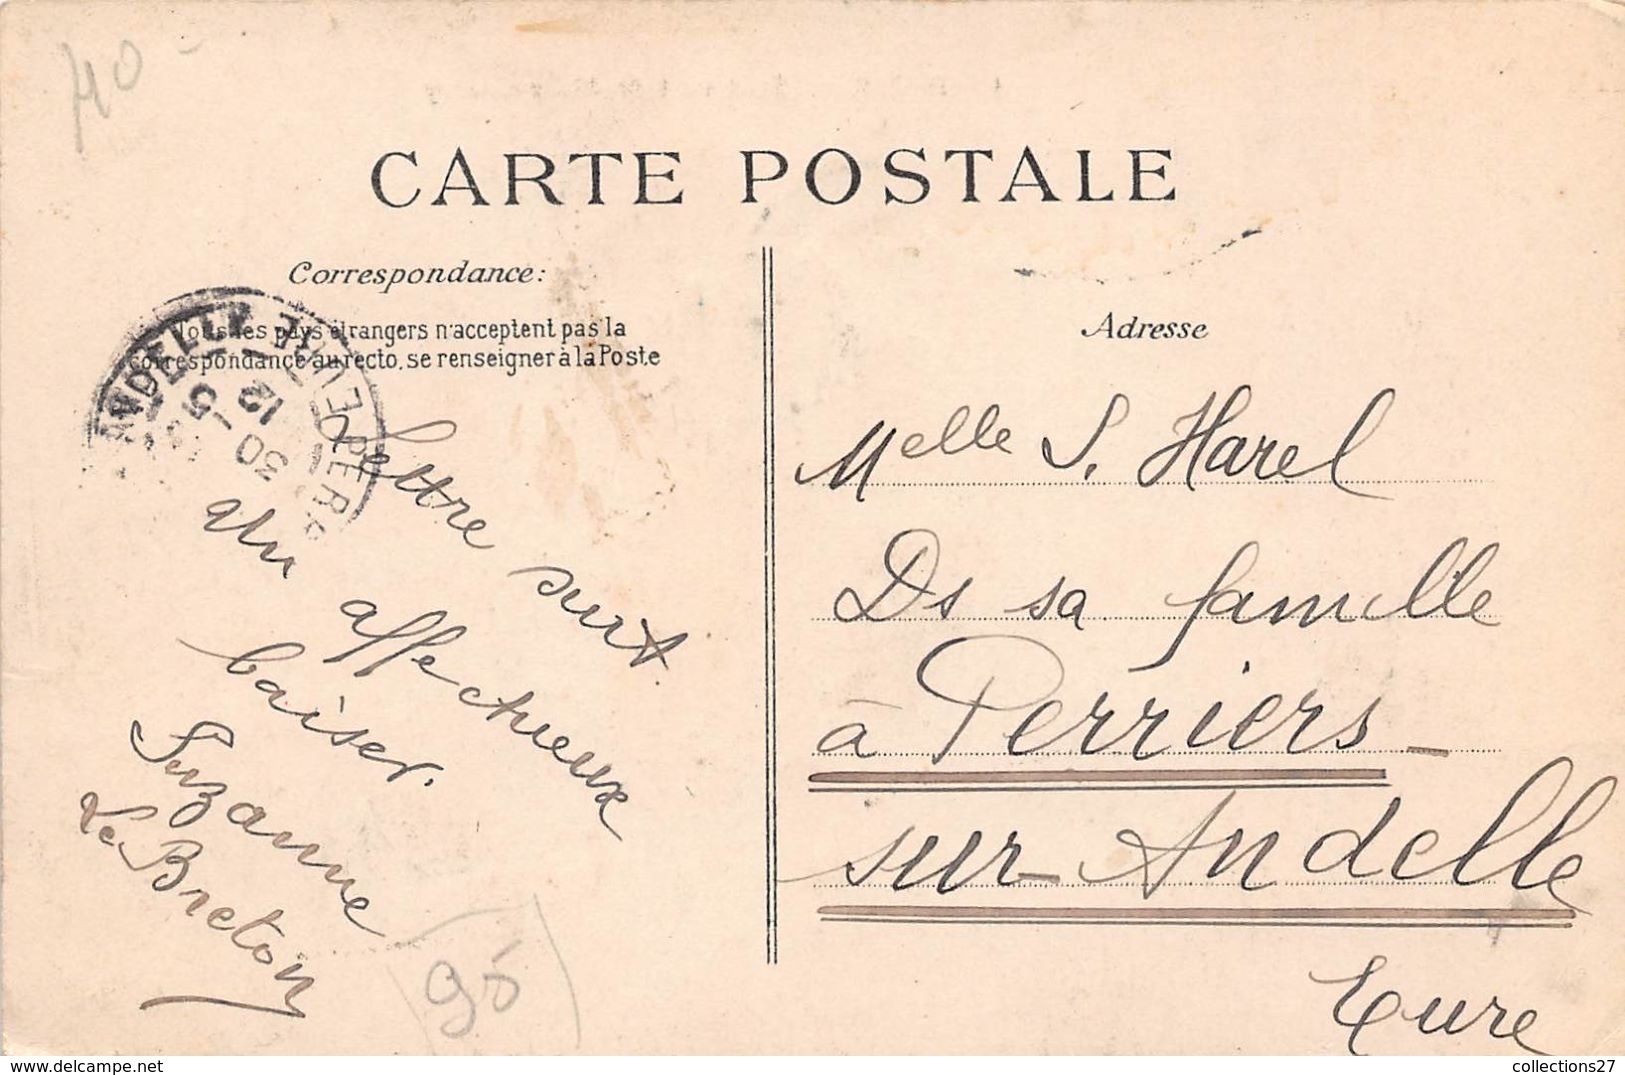 40-
CARTE POSTALE
Correspondance:
Tous les pays étrangers n'acceptent pas la
correspondance au recto, se renseigner à la Poste
Lettre suit.
Un affectueux
baiser.
Suzanne
Le Breton
95
Adresse
Melle S. Harel
Ds sa famille
à Perriers-
sur-Andelle
Eure
collections27